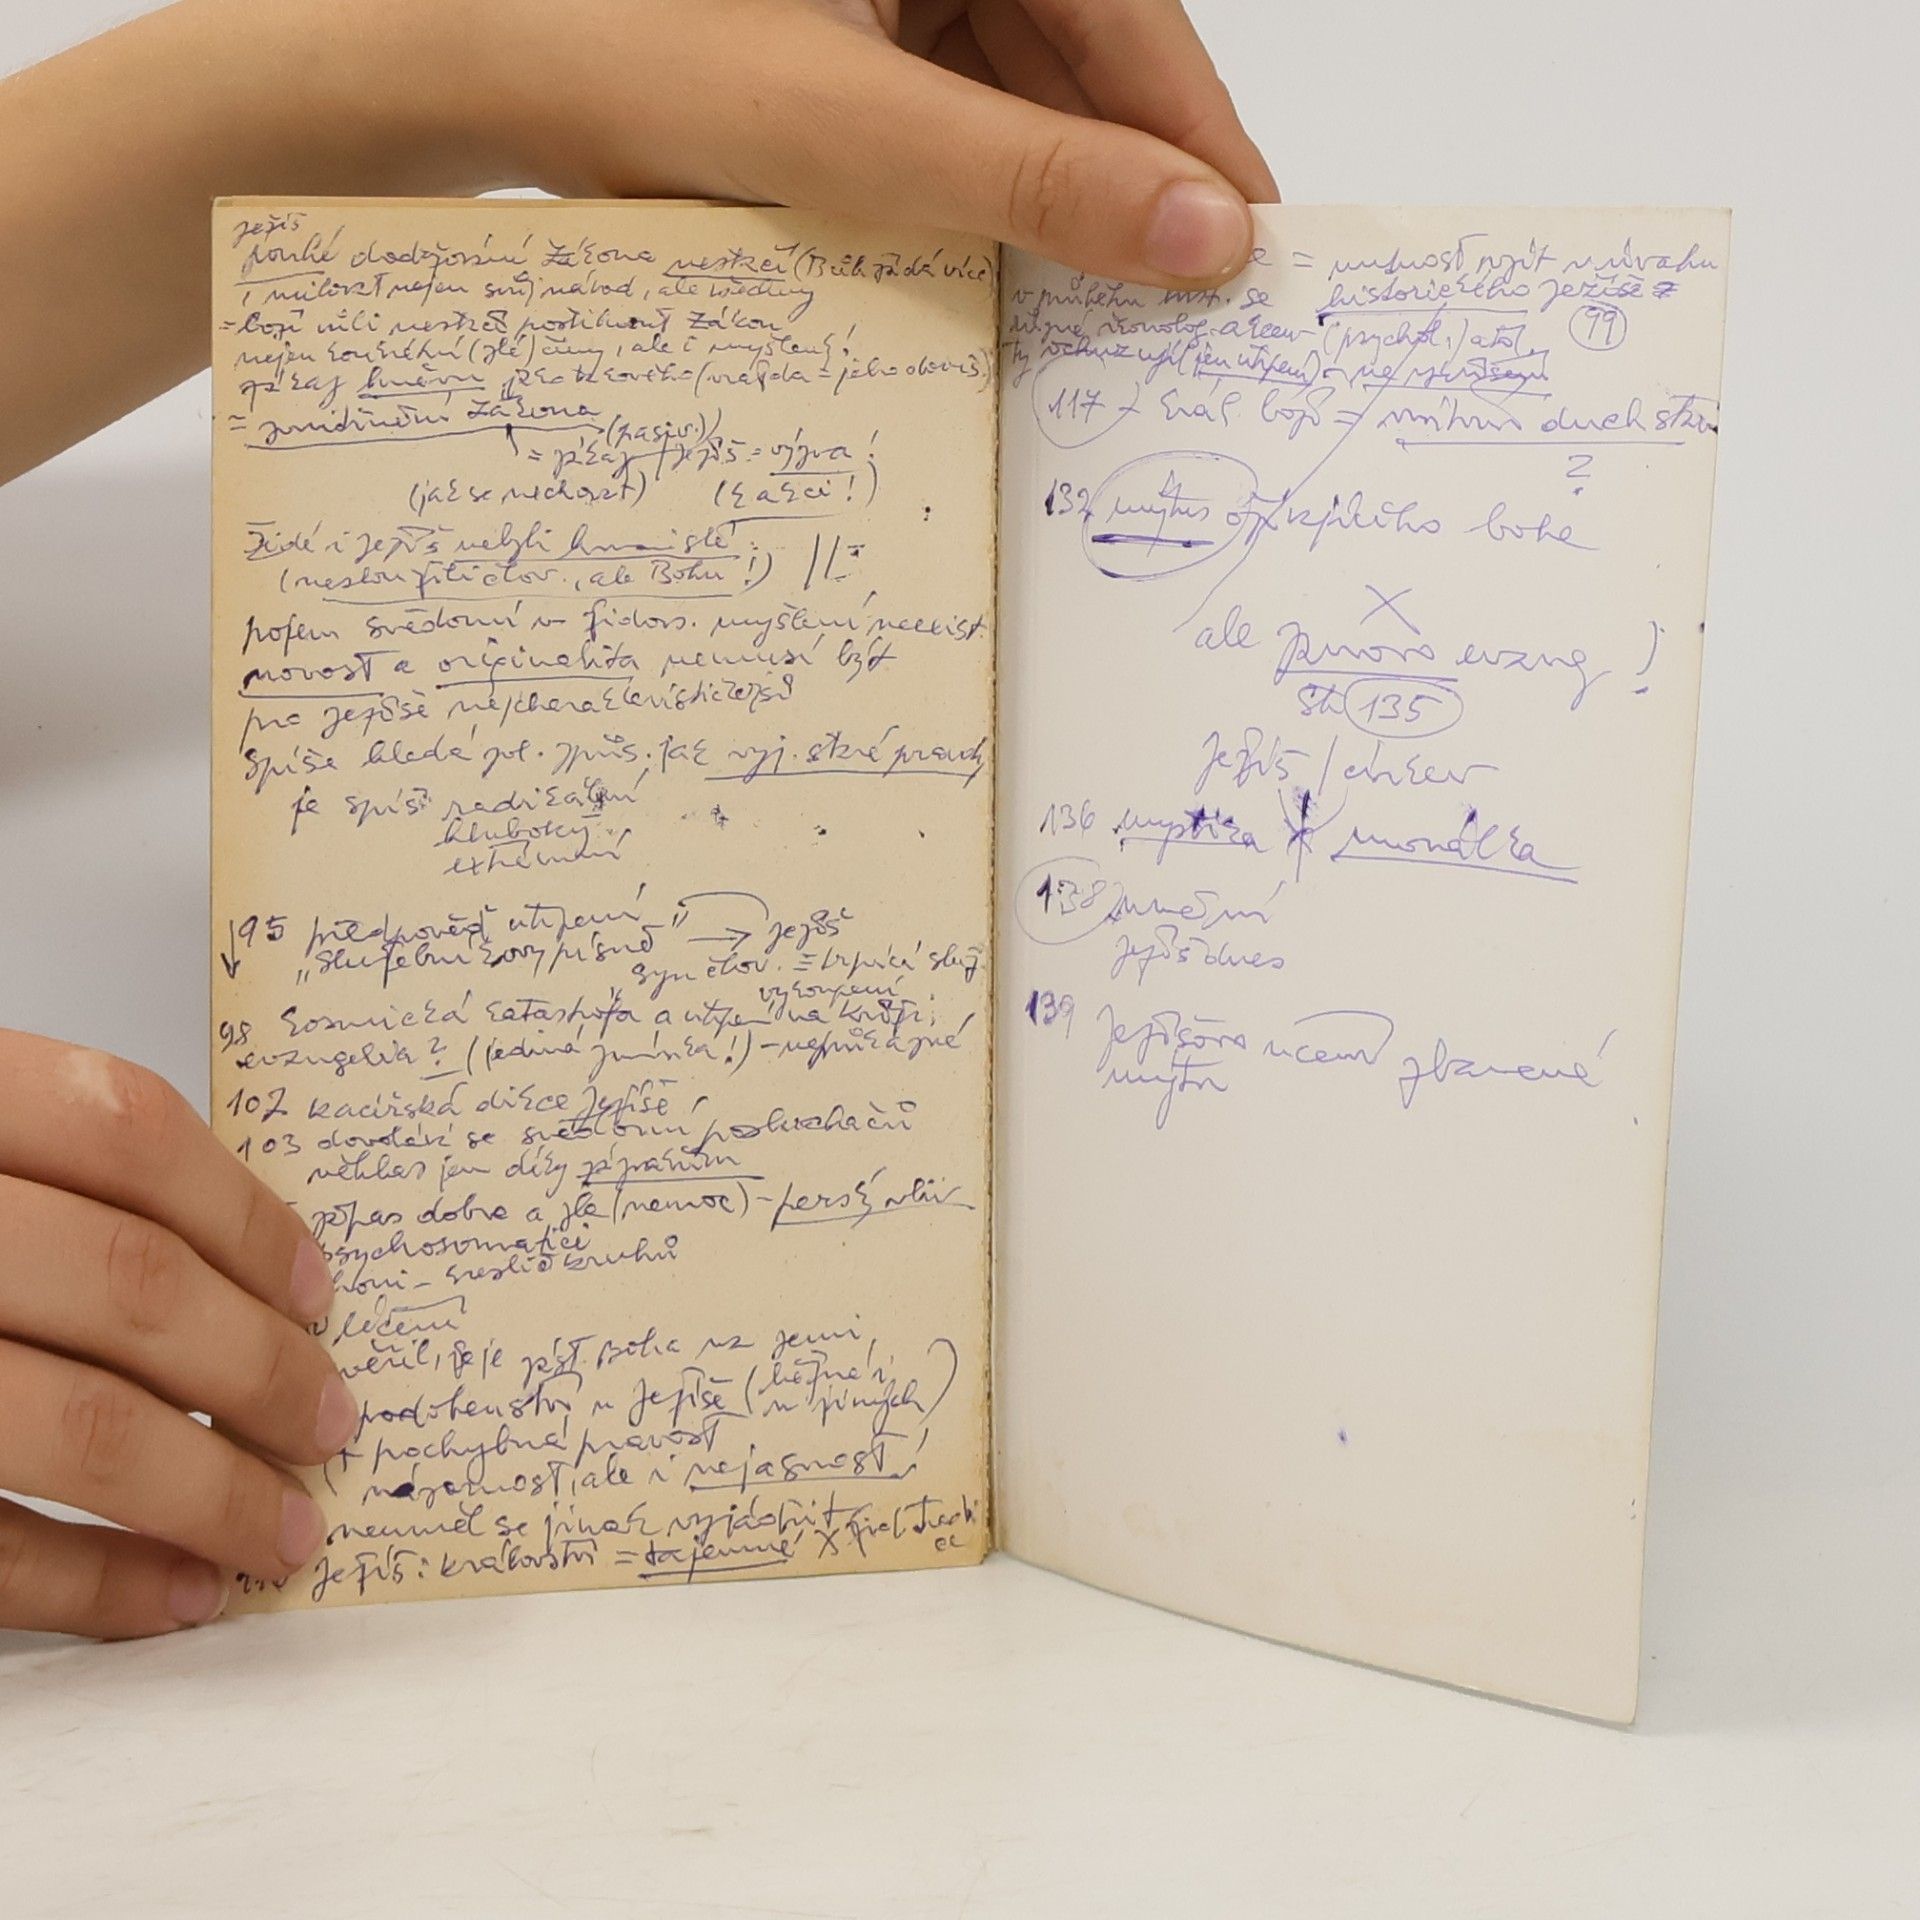 Ježíš
pouhé dodržování Zákona nestačí (Bůh žádá více)
i milovat nejen svůj národ, ale všechny
= boží vůli nestačí postihnout Zákon
nejen konkrétní (zlé) činy, ale i myšlení!
zákaz hněvu jako takového (vražda = jeho
= zvnitřnění Zákona
(pasiv.)
= zákaz Ježíš = výzva!
(jak se nechovat) (k akci!)
Židé i Ježíš nebyli humanisté
(nesloužili člov., ale Bohu!)
pojem svědomí v židovs. myšlení neexist.
novost a originalita nemusí být
pro Ježíše nejcharakterističtější
Spíše hledá zpl. způs. jak vyj. staré pravdy
je spíš radikální
hluboký
extrémní
95 předpověď utrpení
"Služebníkovy písně" → Ježíš
Syn člov. = trpící služ.
vykoupení
98 kosmická katastrofa a utrpení na kříži
evangelia? (jediná zmínka!) – neprůkazné
102 kacířská dikce Ježíše
103 dovolává se svědomí posluchačů
věhlas jen díky zázrakům
zápas dobra a zla (nemoc) – perský vliv
psychosomatici
kreslič kruhů
léčení
věřil, že je zást. Boha na zemi
podobenství u Ježíše (běžná i
u jiných)
(+ pochybná pravost
názornost, ale i nejasnost!
neuměl se jinak vyjádřit
Ježíš: království = tajemné X
= nutnost vzít v úvahu
v průběhu hist. se historického Ježíše
(psychol.) atd. 99
(jen utrpení)
117 – král. boží = vnitřní duch. stav
?
132 mýtus ožívajícího boha
X
ale znovu evang.!
Str. 135
Ježíš / církev
136 mystika X morálka
138 umučení
Ježíš dnes
139 Ježíšovo učení zbavené
mýtu